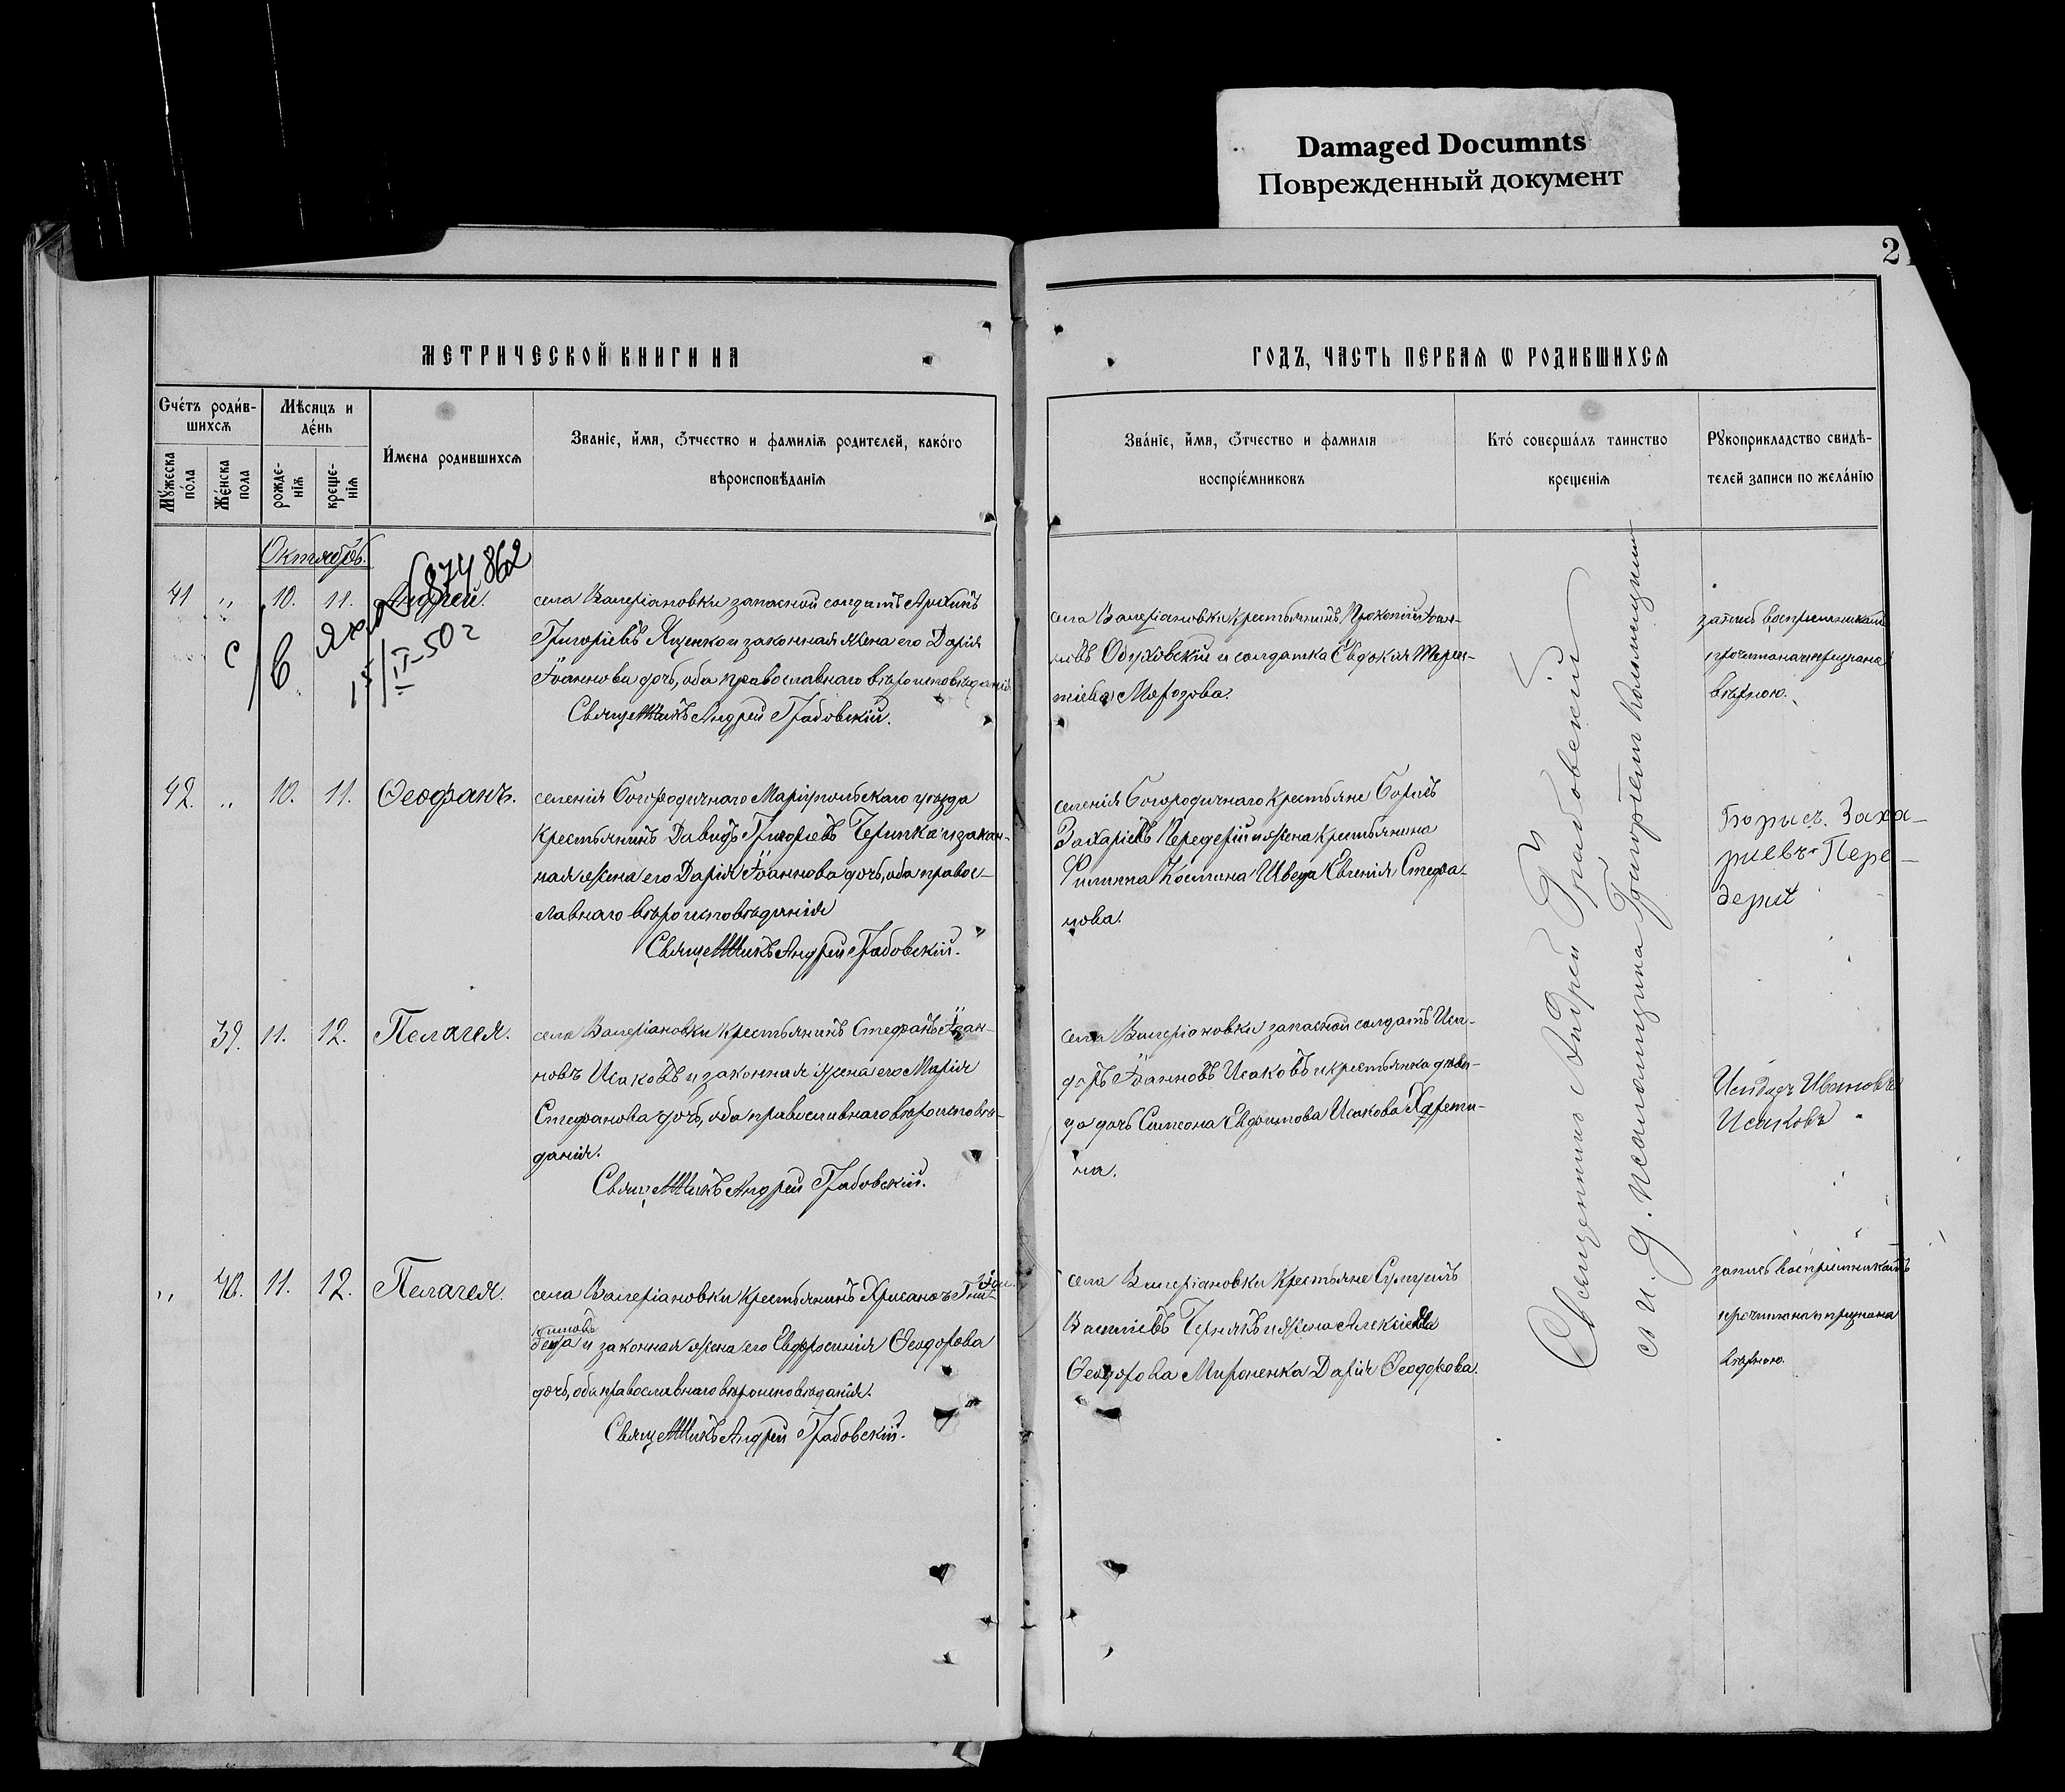 Damaged Documnts
Поврежденный документ
2
МЕТРИЧЕСКОЙ КНИГИ НА
ГОДЪ, ЧАСТЬ ПЕРВАЯ Ѡ РОДИВШИХСЯ
Счетъ родив-
шихся
Мѣсяцъ и
день
Мужеска
пола
Женска
пола
рожде-
нія
креще-
нія
Имена родившихся
Званіе, имя, отчество и фамилія родителей, какого
вѣроисповѣданія
Званіе, имя, отчество и фамилія
воспріемниковъ
Кто совершалъ таинство
крещенія
Рукоприкладство свидѣ-
телей записи по желанію
Октябрь.
874862
15/II-50 г
41 " 10. 11. Андрей.
села Валеріановки запасной солдатъ Архипъ
Григоріевъ Яценко и законная жена его Дарія
Іоаннова дочь, оба православнаго вѣроисповѣданія
Священникъ Андрей Грабовскій.
села Валеріановки крестьянинъ Прокопій Іоан-
новъ Обуховскій и солдатка Евдокія Терен-
тіева Морозова.
запись воспріемникамъ
прочитана и признана
вѣрною.
42. " 10. 11. Ѳеофанъ.
селенія Богородичнаго Маріупольскаго уѣзда
крестьянинъ Давидъ Григоріевъ Черипка и закон-
ная жена его Дарія Іоаннова дочь, оба правос-
лавнаго вѣроисповѣданія
Священникъ Андрей Грабовскій.
селенія Богородичнаго крестьяне Борисъ
Захаріевъ Передерій и жена крестьянина
Филиппа Космина Шведа Евгенія Стефа-
нова.
Борисъ. Заха-
риевъ Пере-
дерий
39. 11. 12. Пелагея.
села Валеріановки крестьянинъ Стефанъ Іоан-
новъ Исаковъ и законная жена его Марія
Стефанова дочь, оба православнаго вѣроисповѣ-
данія.
Священникъ Андрей Грабовскій.
села Валеріановки запасной солдатъ Иси-
доръ Іоанновъ Исаковъ и крестьянка дѣви-
ца дочь Симеона Евдокимова Исакова
на.
Исидоръ Ивановъ
Исаковъ
" 40. 11. 12. Пелагея.
села Валеріановки крестьянинъ Хрисанѳъ
и законная жена его Евфросинія Ѳеодорова
дочь, оба православнаго вѣроисповѣданія.
Священникъ Андрей Грабовскій.
села Валеріановки крестьяне Самуилъ
Василіевъ Чернякъ и жена Алексіева
Ѳеодорова Мироненка Дарія Ѳеодорова.
запись воспріемникамъ
прочитана и признана
вѣрною.
Священникъ Андрей Грабовскій
съ и. д. псаломщика Григоріемъ